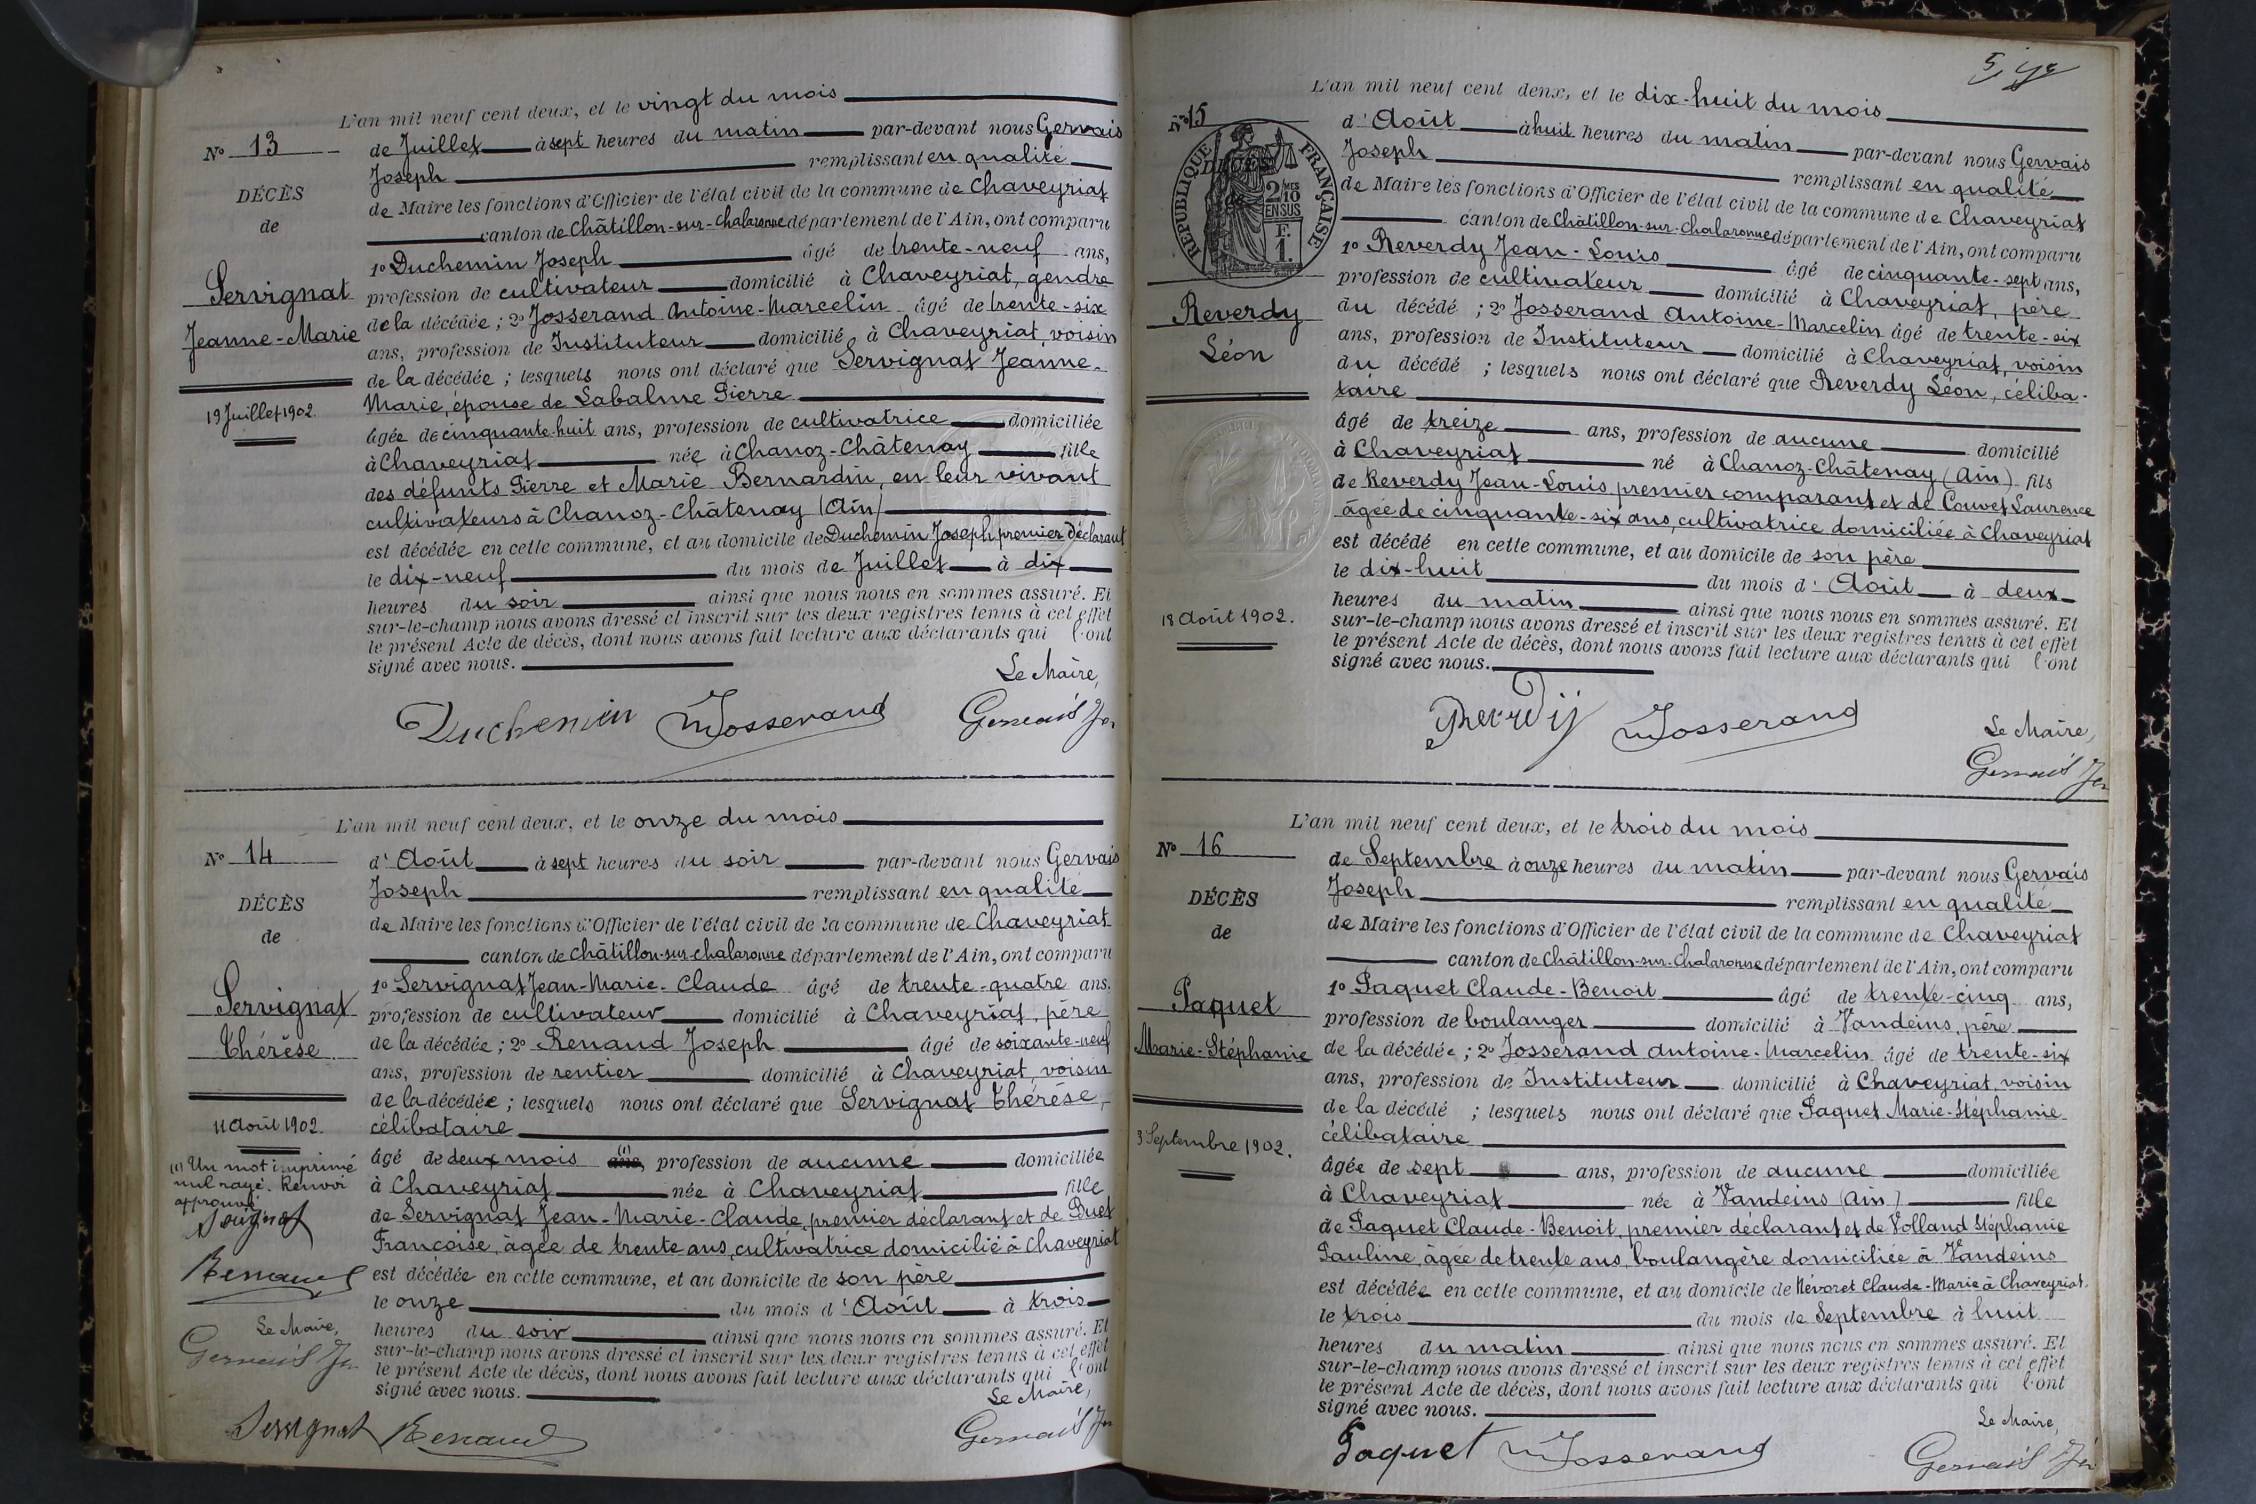 L'an mil neuf cent deux, et le vingt du mois
de Juillet à sept heures du matin par-devant nous Gervais
Joseph remplissant en qualité
de Maire les fonctions d'Officier de l'état civil de la commune de Chaveyriat
canton de Châtillon-sur-Chalaronne département de l'Ain, ont comparu
1º Duchemin Joseph âgé de trente-neuf ans,
profession de cultivateur domicilié à Chaveyriat, gendre
de la décédée ; 2º Josserand Antoine-Marcelin âgé de trente-six
ans, profession de Instituteur domicilié à Chaveyriat, voisin
de la décédée ; lesquels nous ont déclaré que Servignat Jeanne-
Marie, épouse de Labalme Pierre
âgée de cinquante-huit ans, profession de cultivatrice domiciliée
à Chaveyriat née à Chanoz-Châtenay fille
des défunts Pierre et Marie Bernardin, en leur vivant
cultivateurs à Chanoz-Châtenay (Ain)
est décédée en cette commune, et au domicile de Duchemin Joseph premier déclarant
le dix-neuf du mois de Juillet à dix
heures du soir ainsi que nous nous en sommes assuré. Et
sur-le-champ nous avons dressé et inscrit sur les deux registres tenus à cet effet
le présent Acte de décès, dont nous avons fait lecture aux déclarants qui l'ont
signé avec nous.
Le Maire,
Duchemin Josserand Gervais Jh
Nº 13
DÉCÈS
de
Servignat
Jeanne-Marie
19 Juillet 1902.
L'an mil neuf cent deux, et le onze du mois
d'Août à sept heures du soir par-devant nous Gervais
Joseph remplissant en qualité
de Maire les fonctions d'Officier de l'état civil de la commune de Chaveyriat
canton de Châtillon-sur-Chalaronne département de l'Ain, ont comparu
1º Servignat Jean-Marie-Claude âgé de trente-quatre ans.
profession de cultivateur domicilié à Chaveyriat, père
de la décédée ; 2º Renaud Joseph âgé de soixante-neuf
ans, profession de rentier domicilié à Chaveyriat, voisin
de la décédée ; lesquels nous ont déclaré que Servignat Thérèse,
célibataire
âgé de deux mois ans, (1) profession de aucune domiciliée
à Chaveyriat née à Chaveyriat fille
de Servignat Jean-Marie-Claude, premier déclarant et de Buet
Françoise, âgée de trente ans, cultivatrice domicilié à Chaveyriat
est décédée en cette commune, et au domicile de son père
le onze du mois d'Août à trois
heures du soir ainsi que nous nous en sommes assuré. Et
sur-le-champ nous avons dressé et inscrit sur les deux registres tenus à cet effet
le présent Acte de décès, dont nous avons fait lecture aux déclarants qui l'ont
signé avec nous.
Le Maire,
Servignat Renaud Gervais Jh
Nº 14
DÉCÈS
de
Servignat
Thérèse
11 Août 1902.
(1) Un mot imprimé
nul rayé. Renvoi
approuvé.
Renaud
Le Maire,
Gervais Jh
L'an mil neuf cent deux, et le dix-huit du mois
d'Août à huit heures du matin par-devant nous Gervais
Joseph remplissant en qualité
de Maire les fonctions d'Officier de l'état civil de la commune de Chaveyriat
canton de Châtillon-sur-Chalaronne département de l'Ain, ont comparu
1º Reverdy Jean-Louis âgé de cinquante-sept ans,
profession de cultivateur domicilié à Chaveyriat, père
du décédé ; 2º Josserand Antoine-Marcelin âgé de trente-six
ans, profession de Instituteur domicilié à Chaveyriat, voisin
du décédé ; lesquels nous ont déclaré que Reverdy Léon, céliba-
taire
âgé de treize ans, profession de aucune domicilié
à Chaveyriat né à Chanoz-Châtenay (Ain) fils
de Reverdy Jean-Louis, premier comparant et de Couvet Laurence
âgée de cinquante-six ans, cultivatrice domiciliée à Chaveyriat
est décédé en cette commune, et au domicile de son père
le dix-huit du mois d'Août à deux
heures du matin ainsi que nous nous en sommes assuré. Et
sur-le-champ nous avons dressé et inscrit sur les deux registres tenus à cet effet
le présent Acte de décès, dont nous avons fait lecture aux déclarants qui l'ont
signé avec nous.
Le Maire,
Reverdy Josserand Gervais Jh
Nº 15
DÉCÈS
de
RÉPUBLIQUE FRANÇAISE
2/10MES
EN SUS
F.
1.
Reverdy
Léon
18 Août 1902.
L'an mil neuf cent deux, et le trois du mois
de Septembre à onze heures du matin par-devant nous Gervais
Joseph remplissant en qualité
de Maire les fonctions d'Officier de l'état civil de la commune de Chaveyriat
canton de Châtillon-sur-Chalaronne département de l'Ain, ont comparu
1º Paquet Claude-Benoit âgé de trente-cinq ans,
profession de boulanger domicilié à Vandeins, père
de la décédée ; 2º Josserand Antoine-Marcelin âgé de trente-six
ans, profession de Instituteur domicilié à Chaveyriat, voisin
de la décédé ; lesquels nous ont déclaré que Paquet Marie-Stéphanie
célibataire
âgée de sept ans, profession de aucune domiciliée
à Chaveyriat née à Vandeins (Ain) fille
de Paquet Claude-Benoit, premier déclarant et de Volland Stéphanie
Pauline, âgée de trente ans boulangère domiciliée à Vandeins
est décédée en cette commune, et au domicile de Névoret Claude-Marie à Chaveyriat.
le trois du mois de Septembre à huit
heures du matin ainsi que nous nous en sommes assuré. Et
sur-le-champ nous avons dressé et inscrit sur les deux registres tenus à cet effet
le présent Acte de décès, dont nous avons fait lecture aux déclarants qui l'ont
signé avec nous.
Le Maire,
Paquet Josserand Gervais Jh
Nº 16
DÉCÈS
de
Paquet
Marie-Stéphanie
3 Septembre 1902.